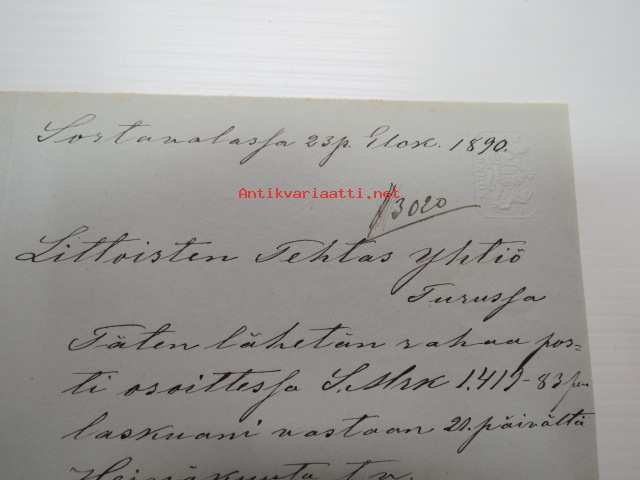 Sortavalassa 23p. Elok. 1890.
Antikvariaatti.net
3020
Littoisten Tehtas Yhtiö
Turussa
Täten lähetän rahaa pos=
ti osoittessa S.Mrk 1.419-83 pen
laskuani vastaan 20. päivältä
Heinäkuuta t.v.